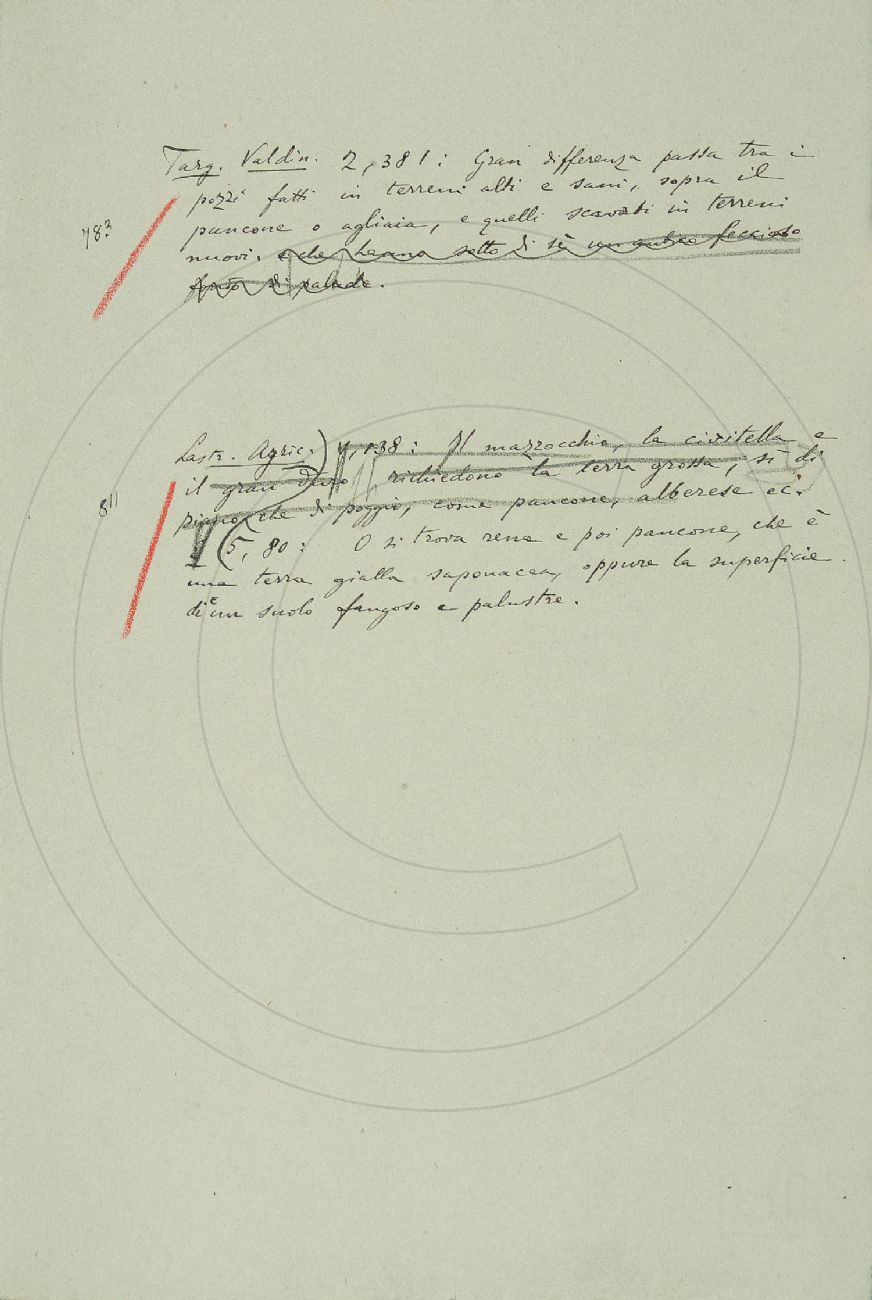 Targ. Valdin. 2, 381: Gran differenza passa tra i
pozzi fatti in terreni alti e sani, sopra il
pancone o agliaia, e quelli scavati in terreni
nuovi. e che hanno sotto di sè un antico feccioso
fondo di palude.
783
Lastr. Agric. 138: Il mazzocchio, la civitella e
il gran duro richiedono la terra grossa, sì di
piano che di poggio, come pancone, alberese ec.
5, 80: O si trova rena e poi pancone, che è
una terra gialla saponacea, oppure la superficie
è di un suolo fangoso e palustre.
811